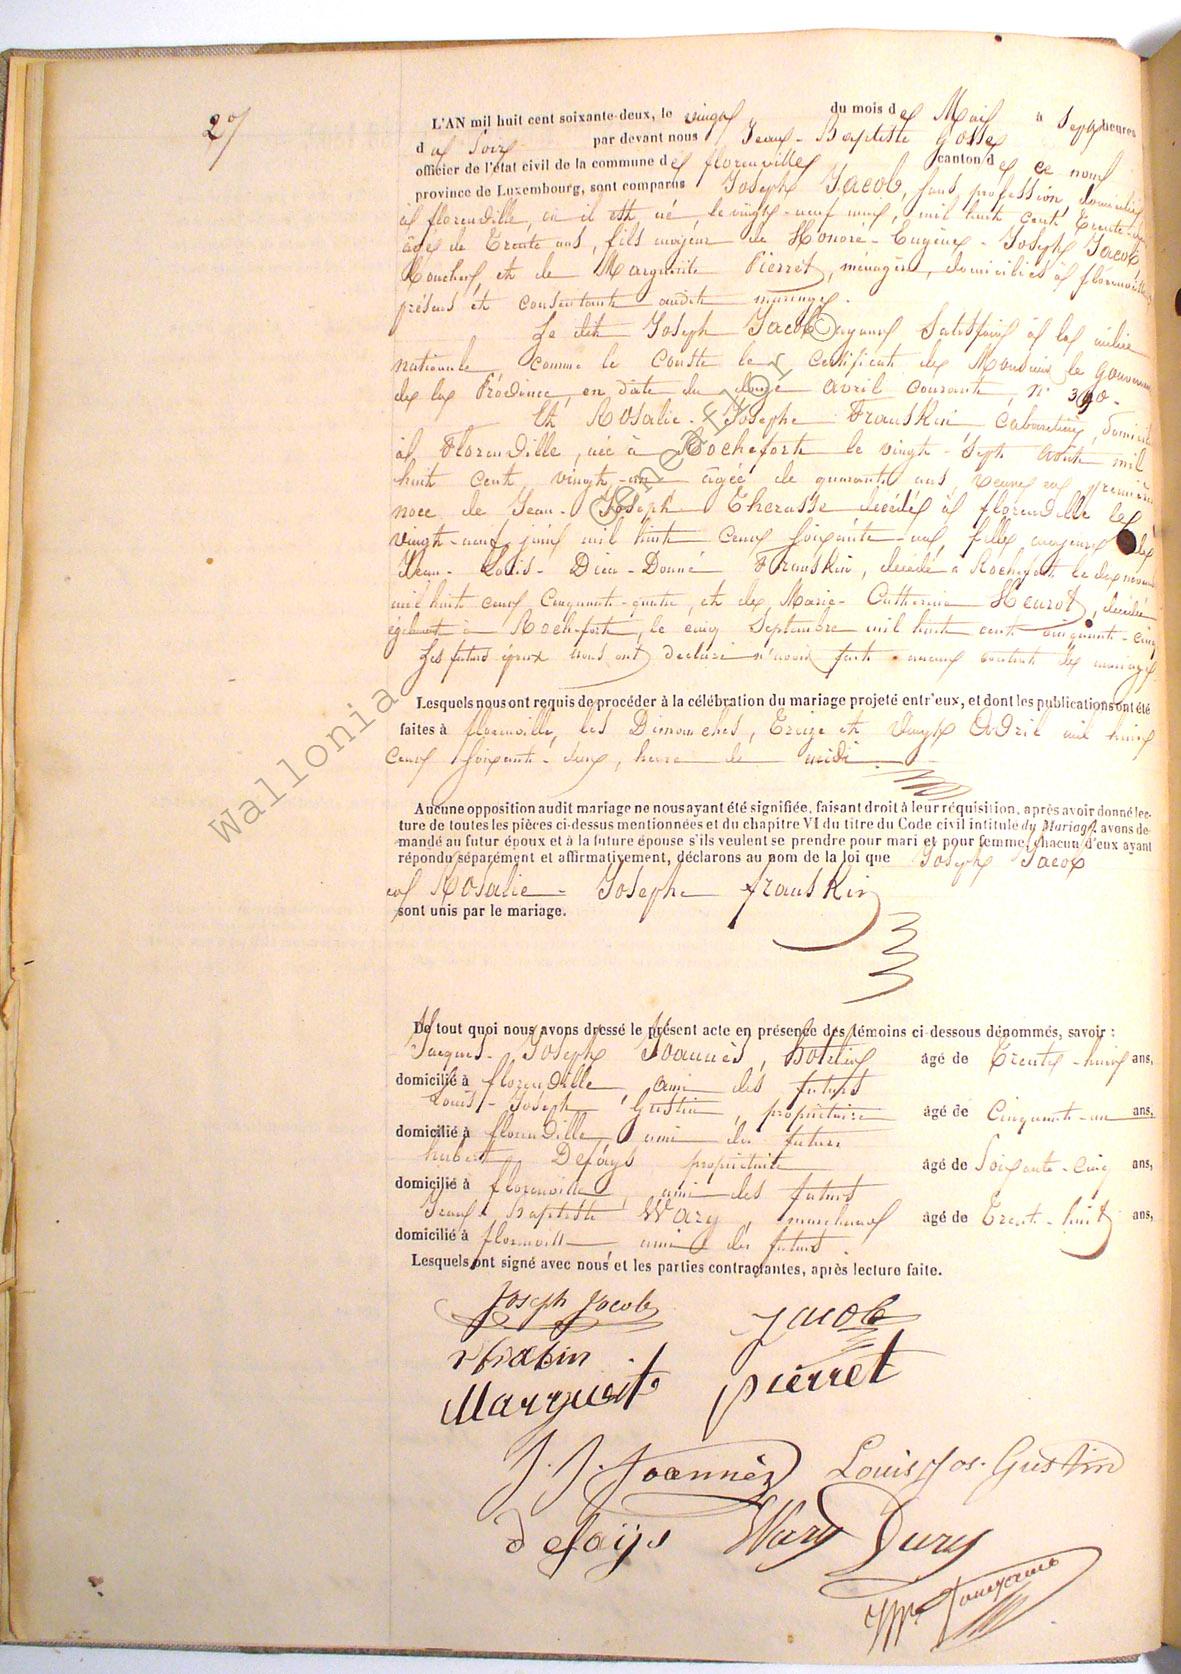 27
L'AN mil huit cent soixante-deux, le vingt du mois de Mai à Sept heures
du Soir par devant nous Jean-Baptiste Gosse
officier de l'état civil de la commune de florenville canton de ce nom
province de Luxembourg, sont comparus Joseph Jacob, sans profession, domicilié
à florenville, où il est né, le vingt-neuf mai, mil huit cent Trente
âgé de Trente ans, fils majeur de Honoré-Eugène-Joseph Jacob
Boucher, et de Marguerite Pierret, ménagère, domiciliés à florenville
présens et consentants audit mariage.
Le dit Joseph Jacob ayant Satisfait à la milice
nationale, comme le Conste le Certificat de Monsieur le Gouverneur
de la Province, en date du douze avril courant, n°
Et Rosalie-Josephe Franskin Cabaretière, domiciliée
à Florenville, née à Rochefort le vingt-Sept Août mil
huit cent vingt-un âgée de quarante ans, veuve en première
noce de Jean-Joseph Therasse décédé à florenville le
vingt-neuf juin mil huit cent soixante-un fille majeure de
Jean-Louis-Dieu-Donné Franskin, décédé à Rochefort le
mil huit cent Cinquante-quatre, et de Marie-Catherine Heurot, décédée
également à Rochefort, le cinq Septembre mil huit cent cinquante-cinq
Les futurs époux nous ont déclaré n'avoir fait aucun contrat de mariage
Lesquels nous ont requis de procéder à la célébration du mariage projeté entr'eux, et dont les publications ont été
faites à florenville, les Dimanches, Treize et vingt Avril mil huit
Cent soixante-deux, heure de midi
Aucune opposition audit mariage ne nous ayant été signifiée, faisant droit à leur réquisition, après avoir donné lec-
ture de toutes les pièces ci-dessus mentionnées et du chapitre VI du titre du Code civil intitulé du Mariage, avons de-
mandé au futur époux et à la future épouse s'ils veulent se prendre pour mari et pour femme, chacun d'eux ayant
répondu séparément et affirmativement, déclarons au nom de la loi que Joseph Jacob
et Rosalie-Josephe franskin
sont unis par le mariage.
De tout quoi nous avons dressé le présent acte en présence des témoins ci-dessous dénommés, savoir :
Jacques-Joseph Joannès, hotelier âgé de Trente-neuf ans,
domicilié à florenville, ami des futurs
Louis-Joseph Gustin, propriétaire âgé de Cinquante-un ans,
domicilié à florenville ami des futurs
hubert Defays propriétaire âgé de Soixante-cinq ans,
domicilié à florenville, ami des futurs
Jean-Baptiste Wary, marchand âgé de Trente-huit ans,
domicilié à florenville ami des futurs.
Lesquels ont signé avec nous et les parties contractantes, après lecture faite.
Joseph Jacob Jacob
Marguerite pierret
J. J. Joannès Louis Jos. Gustin
defays Wary
Wallonia ©eneaflor ©